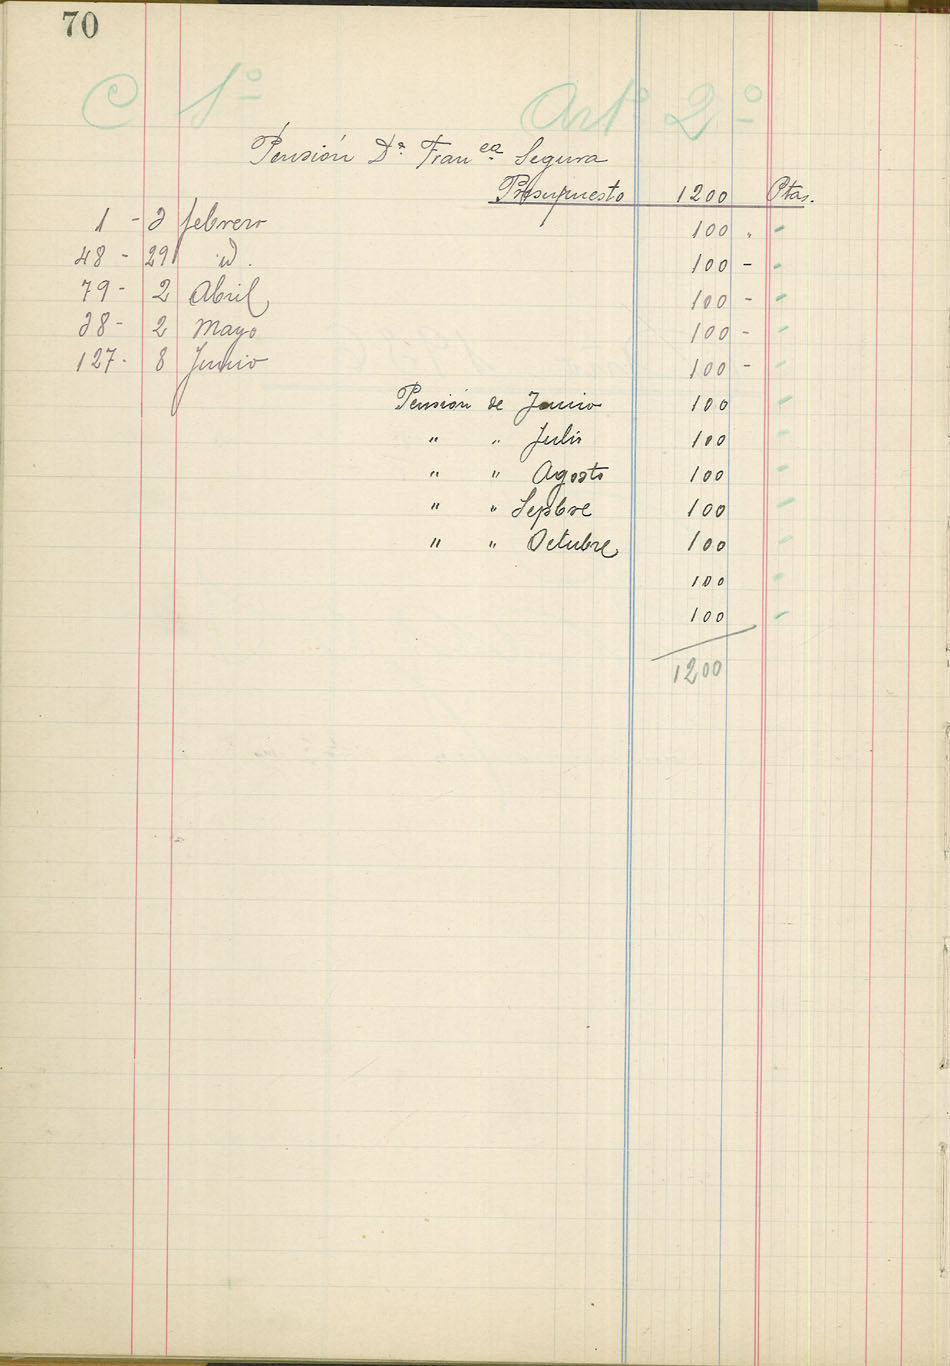 70
C 1º Artº 2º
Pensión Dª Franca Segura
Presupuesto 1200 Ptas.
1 - 3 febrero 100 . "
48 - 29 id. 100 - "
79 - 2 Abril 100 - "
38 - 2 Mayo 100 - "
127 - 8 Junio 100 - "
Pensión de Junio 100 "
" " Julio 100 "
" " Agosto 100 "
" " Sepbre 100 "
" " Octubre 100 "
100 "
100 "
1200